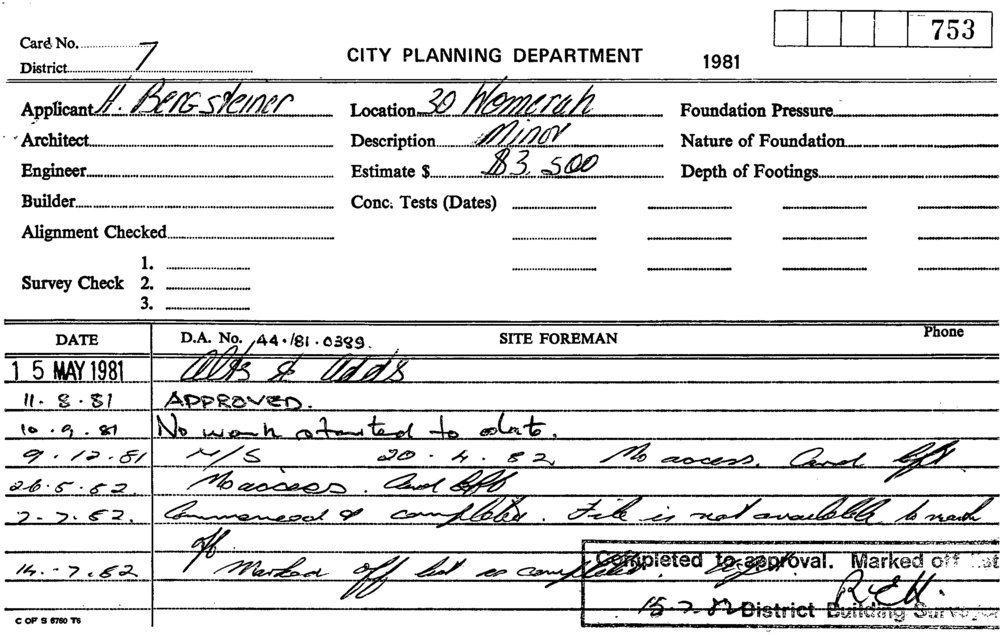 753
Card No. 7
District
CITY PLANNING DEPARTMENT 1981
Applicant H. Bergsteiner Location 30 Womerah Foundation Pressure
Architect Description Minor Nature of Foundation
Engineer Estimate $ $3,500 Depth of Footings
Builder Conc. Tests (Dates)
Alignment Checked
1.
Survey Check 2.
3.
DATE D.A. No. 44·/81·0389. SITE FOREMAN Phone
15 MAY 1981 Alts & Adds
11·8·81 APPROVED.
10·9·81 No work started to date.
9·12·81 N/S 20·4·82 No access. Card left
26·5·82. No access. Card left
7-7.82. Commenced & completed. File is not available to mark
off.
14.-7.82 Marked off list as completed.
Completed to approval. Marked off list
15-7-82 District Building Surveyor
C OF S 6760 T6